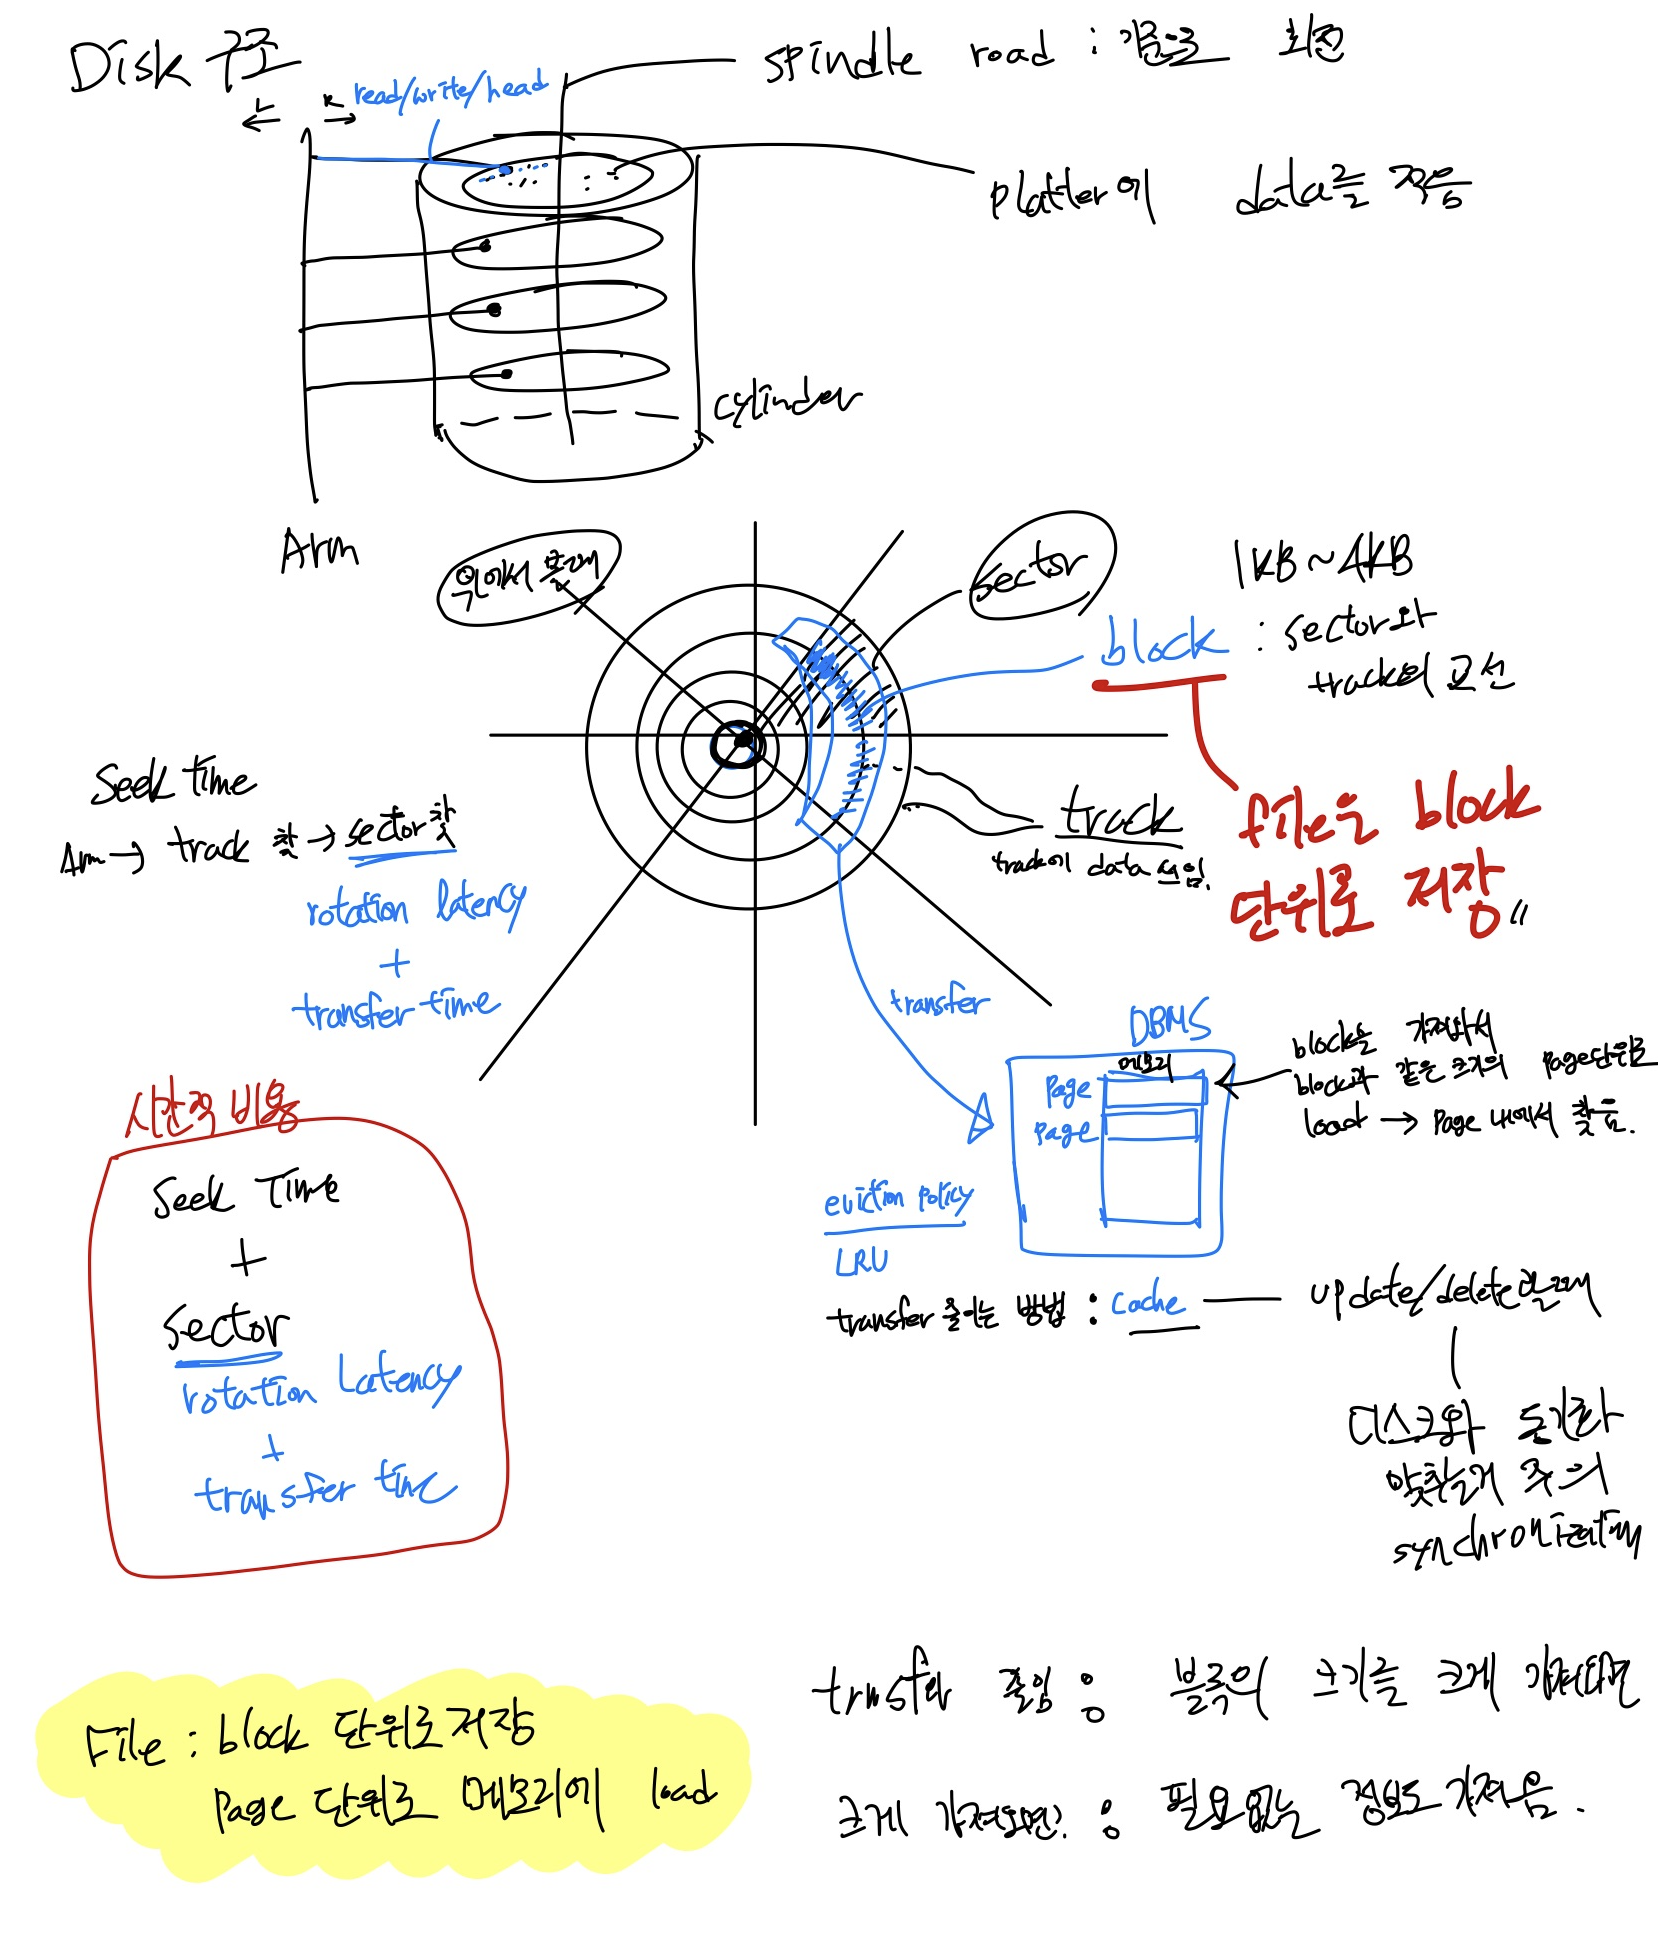 Disk 구조
L R
read/write/head
spindle road : 기준으로 회전
platter에 data를 적음
cylinder
Arm
위에서 볼때
sector
1KB~4KB
block : sector와
track의 교선
file을 block
단위로 저장
track
track에 data 쓰임.
Seek time
Arm → track 찾 → sector찾
rotation latency
+
transfer time
transfer
DBMS
메모리
page
page
block을 가져와서
block과 같은 크기의 page단위로
load → page 내에서 찾음.
시간적 비용
Seek Time
+
Sector
rotation Latency
+
transfer time
eviction policy
LRU
transfer 줄이는 방법 : cache
update/delete할때
디스크와 동기화
맞추는거 주의
synchronization
File : block 단위로 저장
page 단위로 메모리에 load
trnsfer 줄임 : 블록의 크기를 크게 가져다면
크게 가져오면. : 필요없는 정보도 가져옴.